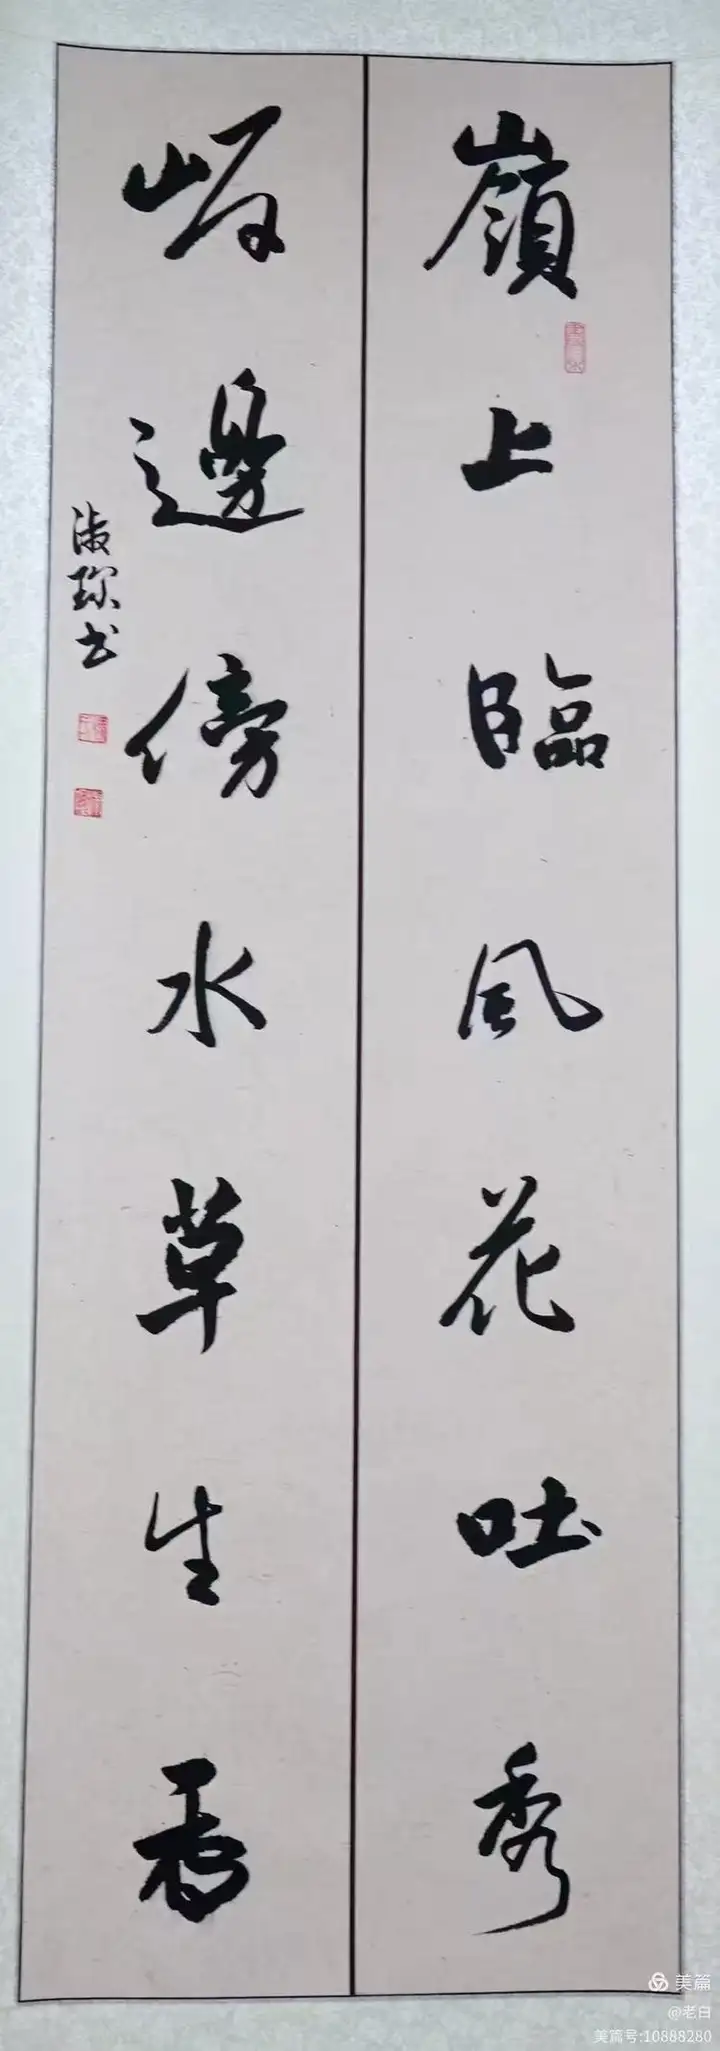 嶺上臨風花吐秀
邊傍水草生
淑珍书
美篇
@老白
美篇号:10888280